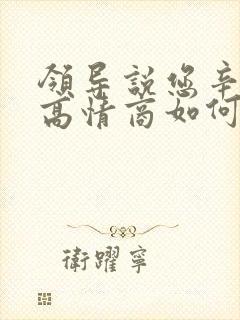 領导説您辛
高情商如何
衛躍寧